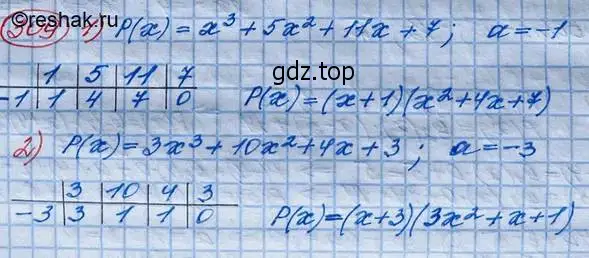 309 1) P(x) = x³ + 5x² + 11x + 7; a = -1
gdz.top
1 5 11 7
-1 1 4 7 0 P(x) = (x+1)(x²+4x+7)
2) P(x) = 3x³ + 10x² + 4x + 3; a = -3
3 10 4 3
-3 3 1 1 0 P(x) = (x+3)(3x²+x+1)